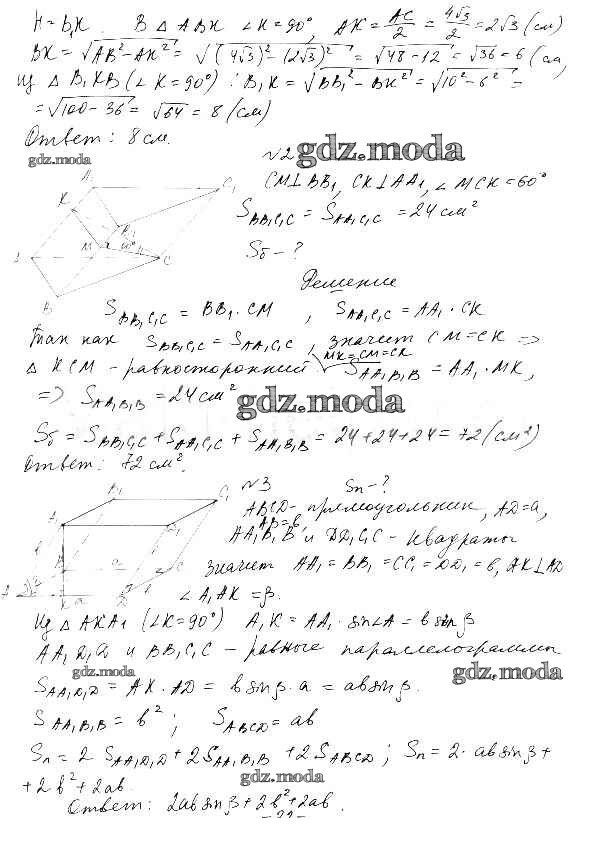 H = B₁K. В Δ ABK ∠K = 90°, AK = AC/2 = 4√3/2 = 2√3 (см)
BK = √AB² - AK² = √(4√3)² - (2√3)² = √48 - 12 = √36 = 6 (см,
из Δ B₁KB (∠K = 90°): B₁K = √BB₁² - BK² = √10² - 6² =
= √100 - 36 = √64 = 8 (см)
Ответ: 8 см.
gdz.moda
№2 gdz.moda
CM⊥BB₁, CK⊥AA₁, ∠MCK = 60°
S BB₁C₁C = S AA₁C₁C = 24 см²
Sб - ?
A₁ C₁ K B₁ M 60° A C B
Решение
S BB₁C₁C = BB₁ · CM, S AA₁C₁C = AA₁ · CK
Так как S BB₁C₁C = S AA₁C₁C, значит CM = CK =>
Δ KCM - равносторонний MK = CM = CK S AA₁B₁B = AA₁ · MK,
=> S AA₁B₁B = 24 см²
gdz.moda
Sб = S BB₁C₁C + S AA₁C₁C + S AA₁B₁B = 24 + 24 + 24 = 72 (см²)
Ответ: 72 см².
№3 Sп - ?
ABCD - прямоугольник, AD = a,
AB = b,
AA₁B₁B и DD₁C₁C - квадраты
значит AA₁ = BB₁ = CC₁ = DD₁ = b, AK⊥AD
∠A₁AK = β.
B₁ C₁ A₁ D₁ B C A K D a
Из Δ AKA₁ (∠K = 90°) A₁K = AA₁ · sin∠A = b sinβ
AA₁D₁D и BB₁C₁C - равные параллелограммы
gdz.moda
gdz.moda
S AA₁D₁D = AK · AD = b sinβ · a = ab sinβ.
S AA₁B₁B = b²; S ABCD = ab
Sп = 2 S AA₁D₁D + 2 S AA₁B₁B + 2 S ABCD; Sп = 2 · ab sinβ +
+ 2b² + 2ab.
gdz.moda
Ответ: 2ab sinβ + 2b² + 2ab.